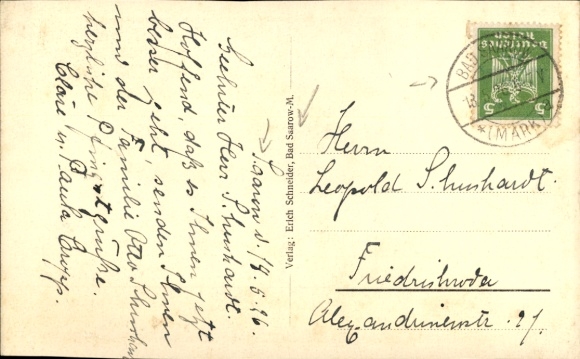 Saarow d. 18.5.26.
Geehrter Herr Schuchardt.
Hoffend, daß es Ihnen jetzt
besser geht, senden Ihnen
und der Familie Otto Schuchardt
herzliche Pfingstgrüße.
Cläre u. Paula
Verlag: Erich Schneider, Bad Saarow-M.
Deutsches Reich
5 5
BAD SAAROW
*(MARK)
Herrn
Leopold Schuchardt.
Friedrichroda
Alexandrinenstr.